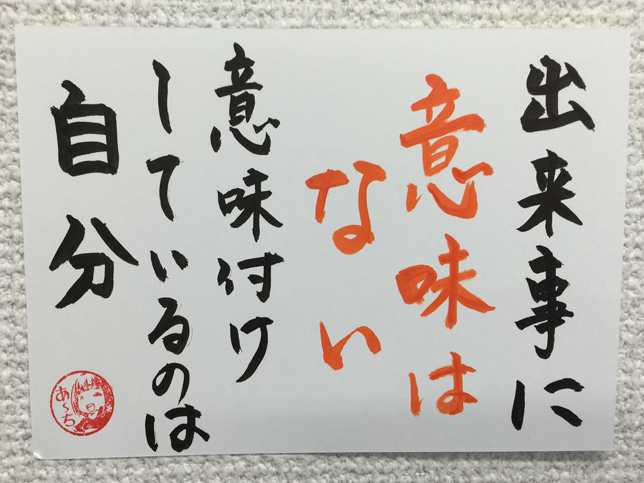 出来事に
意味は
ない
意味付け
しているのは
自分
あ〜ち